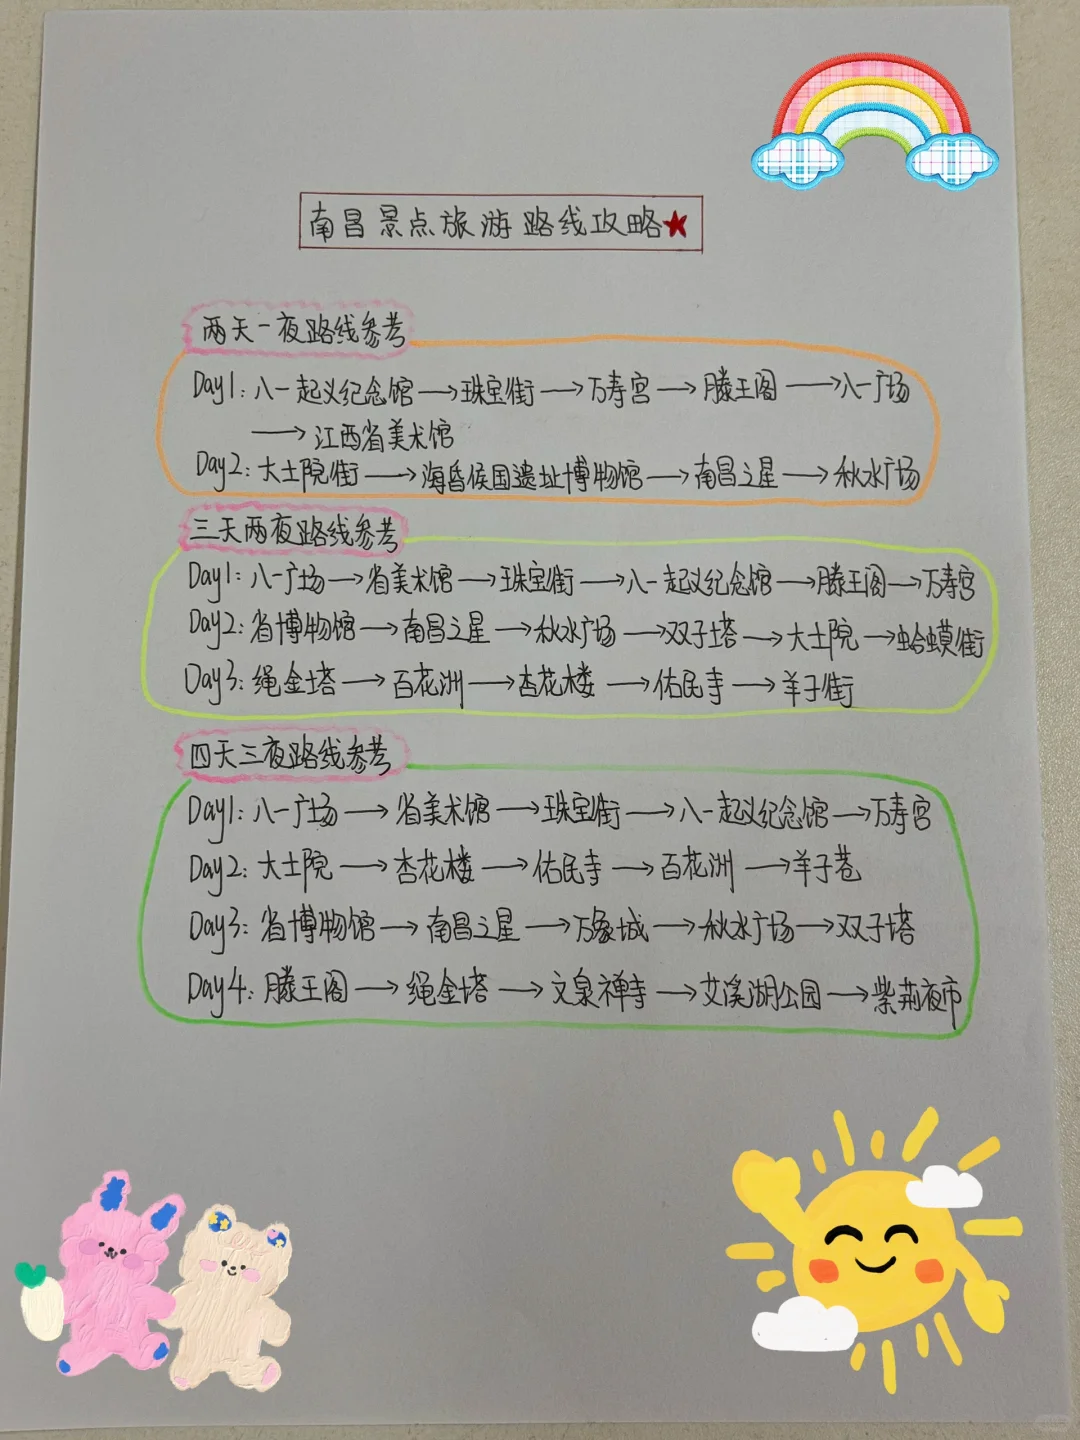 南昌景点旅游路线攻略★
两天一夜路线参考
Day1:八一起义纪念馆→珠宝街→万寿宫→滕王阁→八一广场
→江西省美术馆
Day2:大士院街→海昏侯国遗址博物馆→南昌之星→秋水广场
三天两夜路线参考
Day1:八一广场→省美术馆→珠宝街→八一起义纪念馆→滕王阁→万寿宫
Day2:省博物馆→南昌之星→秋水广场→双子塔→大士院→蛤蟆街
Day3:绳金塔→百花洲→杏花楼→佑民寺→羊子街
四天三夜路线参考
Day1:八一广场→省美术馆→珠宝街→八一起义纪念馆→万寿宫
Day2:大士院→杏花楼→佑民寺→百花洲→羊子巷
Day3:省博物馆→南昌之星→万象城→秋水广场→双子塔
Day4:滕王阁→绳金塔→文泉禅寺→艾溪湖公园→紫荆夜市